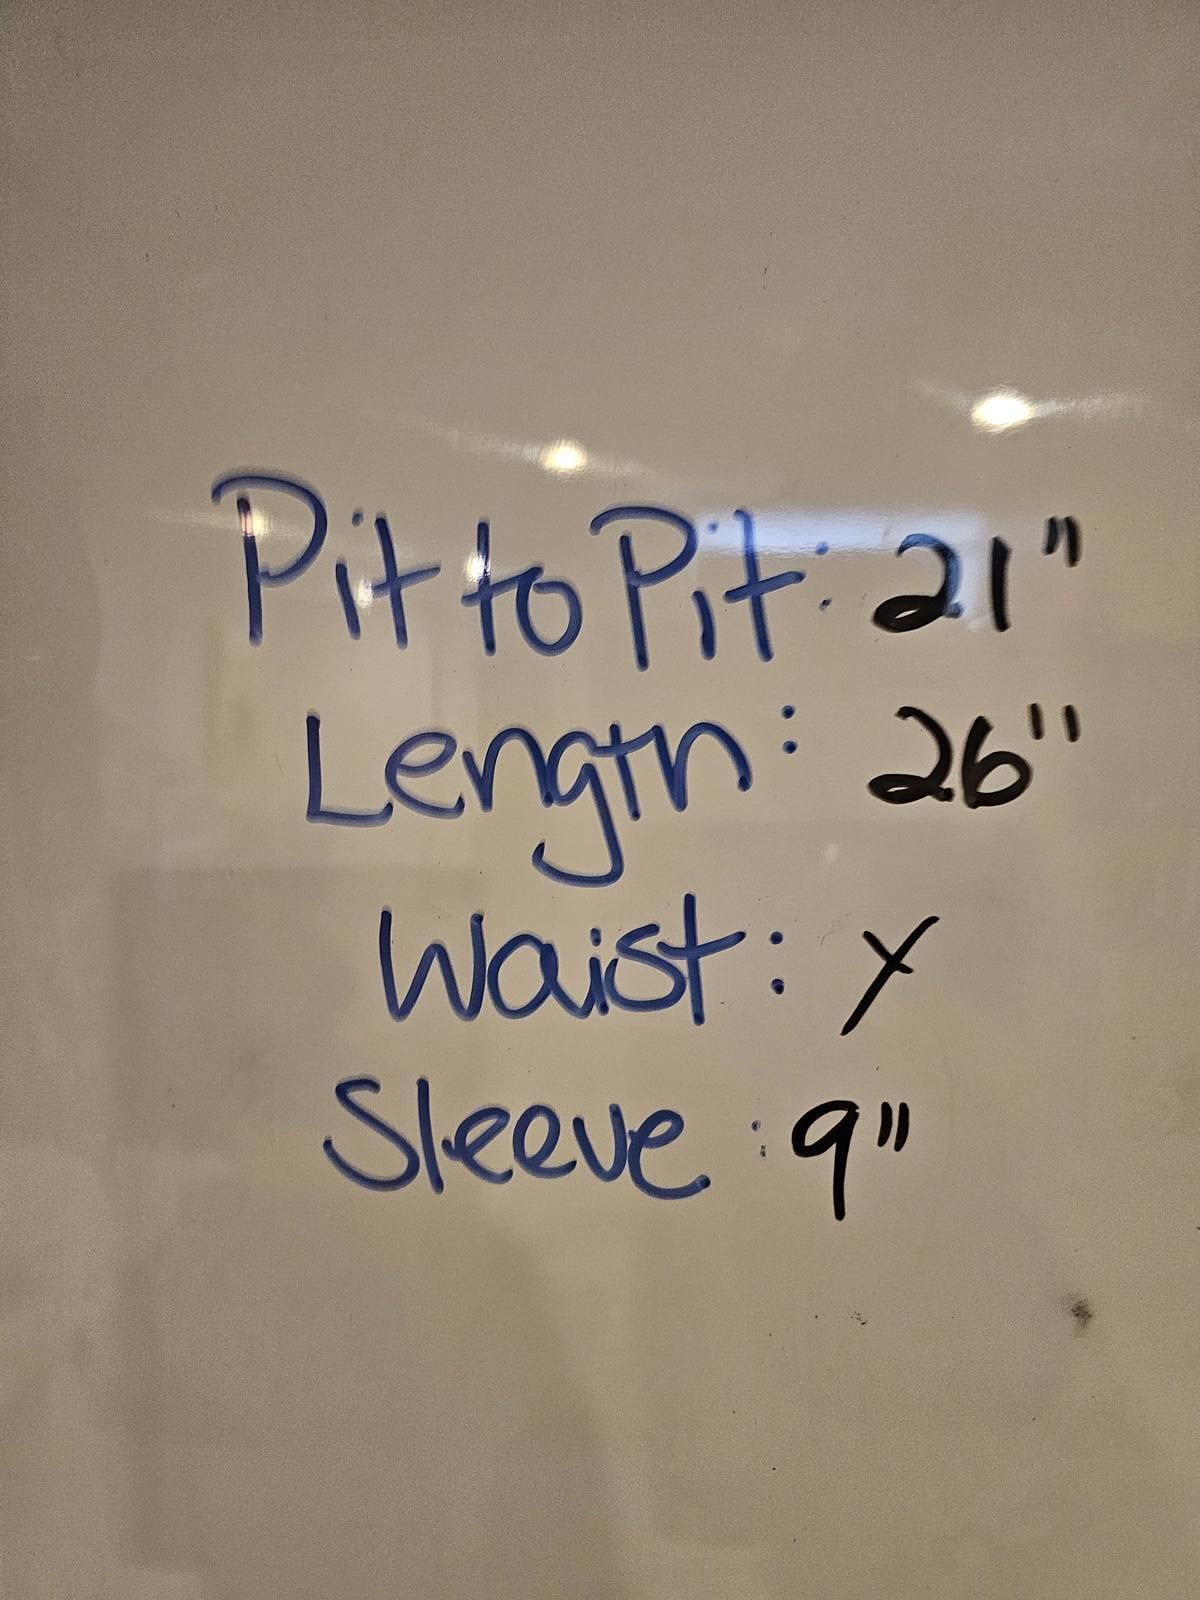 Pit to Pit: 21"
Length: 26"
Waist: X
Sleeve: 9"